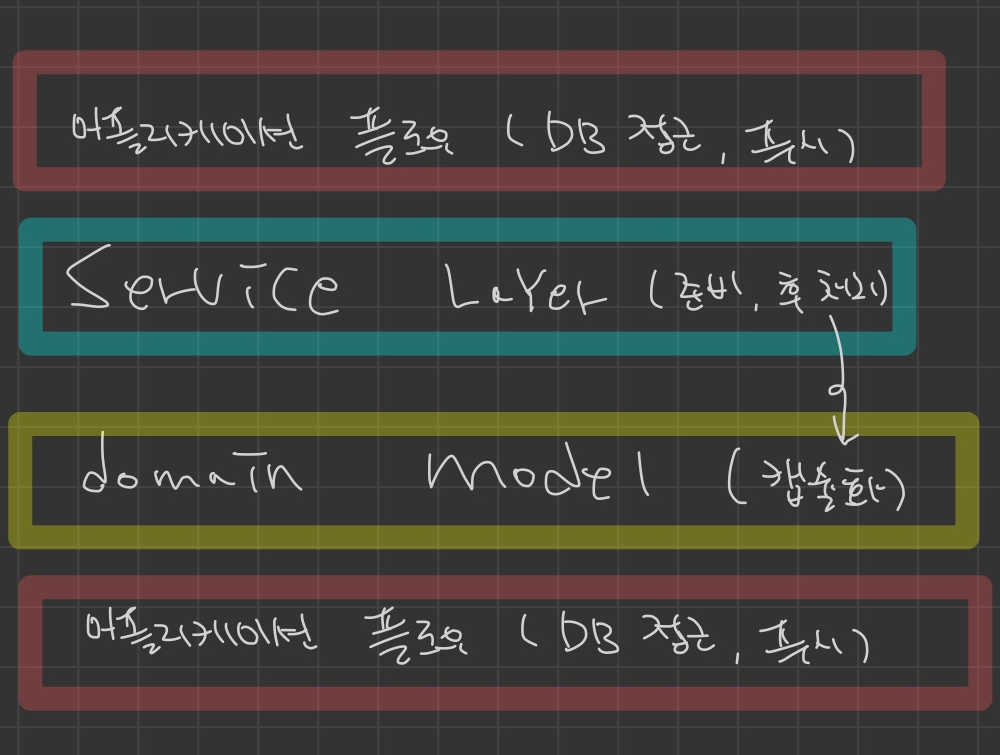 어플리케이션 플로우 ( DB 접근, 푸시)
Service Layer (준비, 후처리)
domain model (캡슐화)
어플리케이션 플로우 ( DB 접근, 푸시)